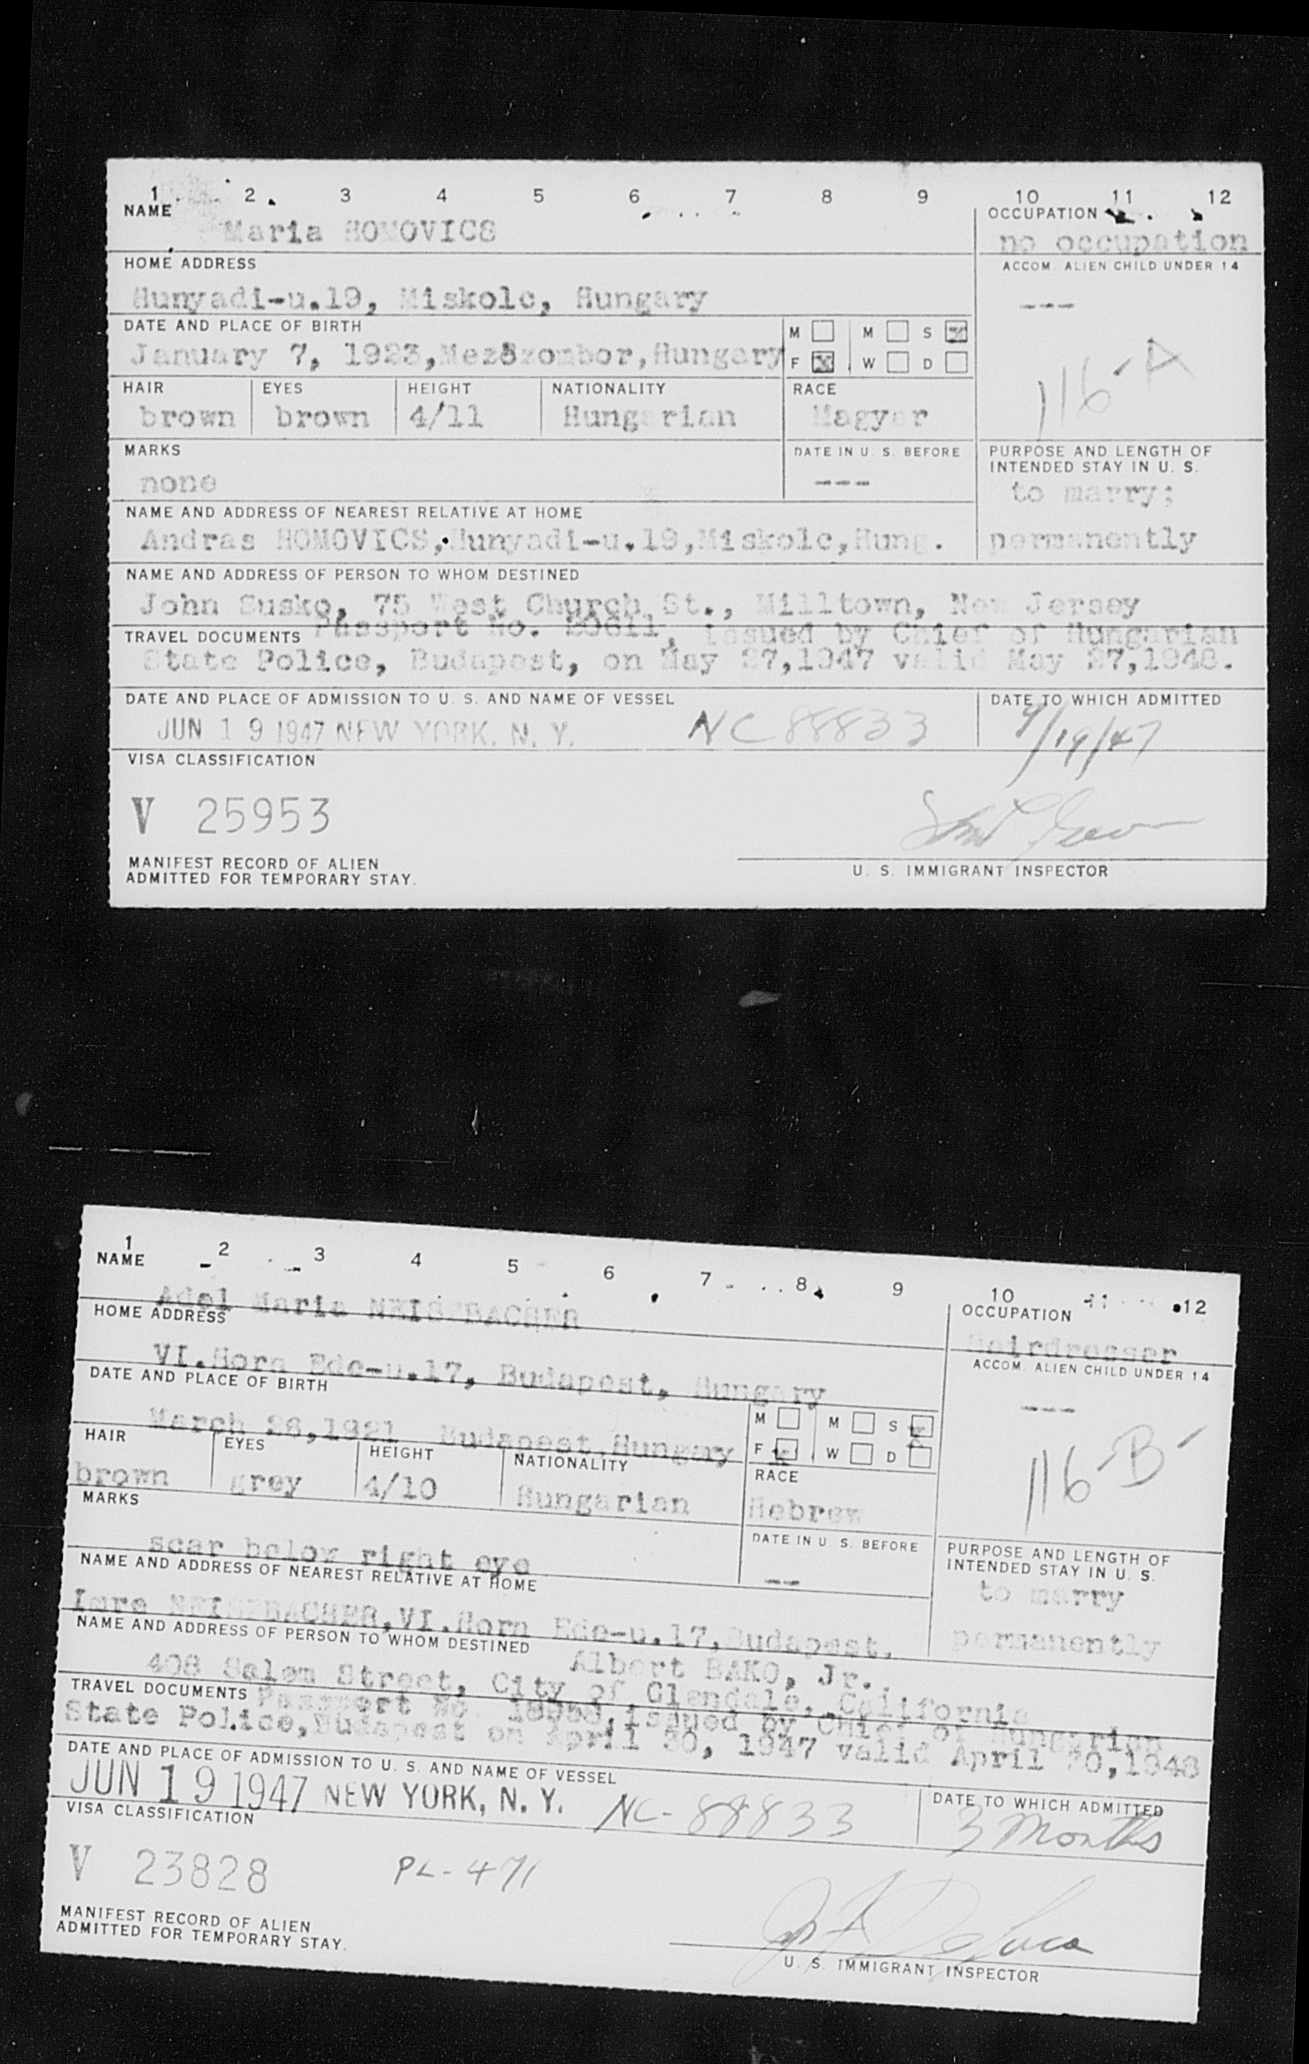 1 2 3 4 5 6 7 8 9 10 11 12
NAME
Maria HOMOVICS
OCCUPATION
no occupation
HOME ADDRESS
Hunyadi-u.19, Miskolc, Hungary
ACCOM. ALIEN CHILD UNDER 14
---
DATE AND PLACE OF BIRTH
January 7, 1923,Mezőzombor,Hungary
M M S X
F X W D
116-A
HAIR EYES HEIGHT NATIONALITY RACE
brown brown 4/11 Hungarian Magyar
MARKS
none
DATE IN U. S. BEFORE
---
PURPOSE AND LENGTH OF
INTENDED STAY IN U. S.
to marry;
permanently
NAME AND ADDRESS OF NEAREST RELATIVE AT HOME
Andras HOMOVICS,Hunyadi-u.19,Miskolc,Hung.
NAME AND ADDRESS OF PERSON TO WHOM DESTINED
John Susko, 75 West Church St., Milltown, New Jersey
TRAVEL DOCUMENTS Passport No. issued by Chief of Hungarian
State Police, Budapest, on May 27,1947 valid May 27,1948.
DATE AND PLACE OF ADMISSION TO U. S. AND NAME OF VESSEL
JUN 19 1947 NEW YORK, N. Y. NC 88833
DATE TO WHICH ADMITTED
9/19/47
VISA CLASSIFICATION
V 25953
MANIFEST RECORD OF ALIEN
ADMITTED FOR TEMPORARY STAY.
U. S. IMMIGRANT INSPECTOR
1 2 3 4 5 6 7 8 9 10 11 12
NAME
Adel Maria
OCCUPATION
Hairdresser
HOME ADDRESS
VI.Horn Ede-u.17, Budapest, Hungary
ACCOM. ALIEN CHILD UNDER 14
---
DATE AND PLACE OF BIRTH
March 26,1921 Budapest,Hungary
M M S X
F X W D
116-B
HAIR EYES HEIGHT NATIONALITY RACE
brown grey 4/10 Hungarian Hebrew
MARKS
scar below right eye
DATE IN U. S. BEFORE
--
PURPOSE AND LENGTH OF
INTENDED STAY IN U. S.
to marry
permanently
NAME AND ADDRESS OF NEAREST RELATIVE AT HOME
Imre VI.Horn Ede-u.17,Budapest.
NAME AND ADDRESS OF PERSON TO WHOM DESTINED Albert BAKO, Jr.,
408 Salem Street, City of Glendale, California
TRAVEL DOCUMENTS Passport No. issued by Chief of Hungarian
State Police,Budapest on April 30, 1947 valid April 30,1948
DATE AND PLACE OF ADMISSION TO U. S. AND NAME OF VESSEL
JUN 19 1947 NEW YORK, N. Y. NC-88833
DATE TO WHICH ADMITTED
3 Months
VISA CLASSIFICATION
V 23828 PL-471
MANIFEST RECORD OF ALIEN
ADMITTED FOR TEMPORARY STAY.
U. S. IMMIGRANT INSPECTOR